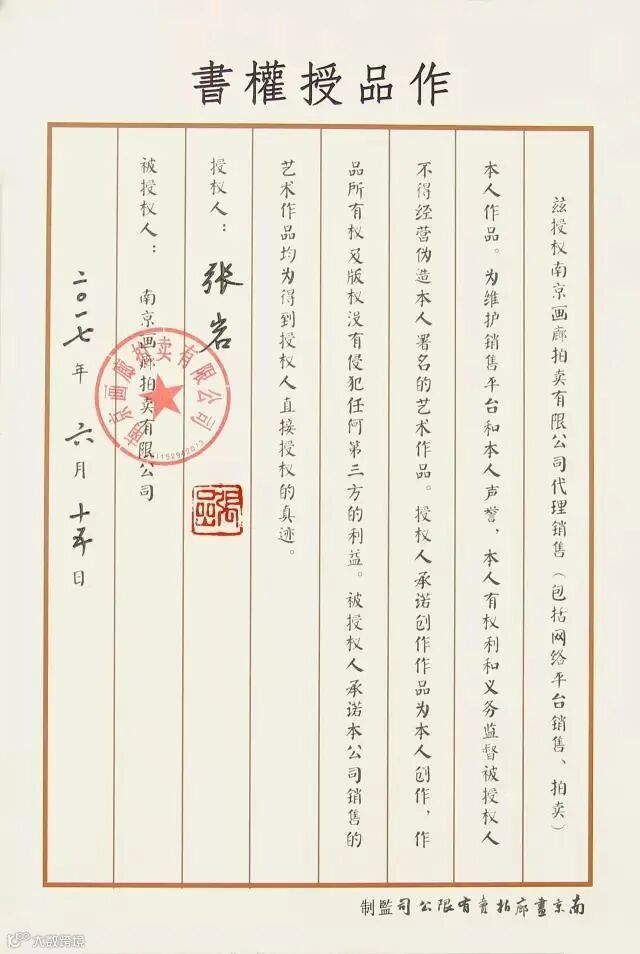 作品授權書
兹授权南京画廊拍卖有限公司代理销售（包括网络平台销售、拍卖）
本人作品。为维护销售平台和本人声誉，本人有权利和义务监督被授权人
不得经营伪造本人署名的艺术作品。授权人承诺创作作品为本人创作，作
品所有权及版权没有侵犯任何第三方的利益。被授权人承诺本公司销售的
艺术作品均为得到授权人直接授权的真迹。
授权人：张岩
被授权人：南京画廊拍卖有限公司
二〇一七年六月十五日
南京画廊拍卖有限公司
南京畫廊拍賣有限公司監制
大数跨境